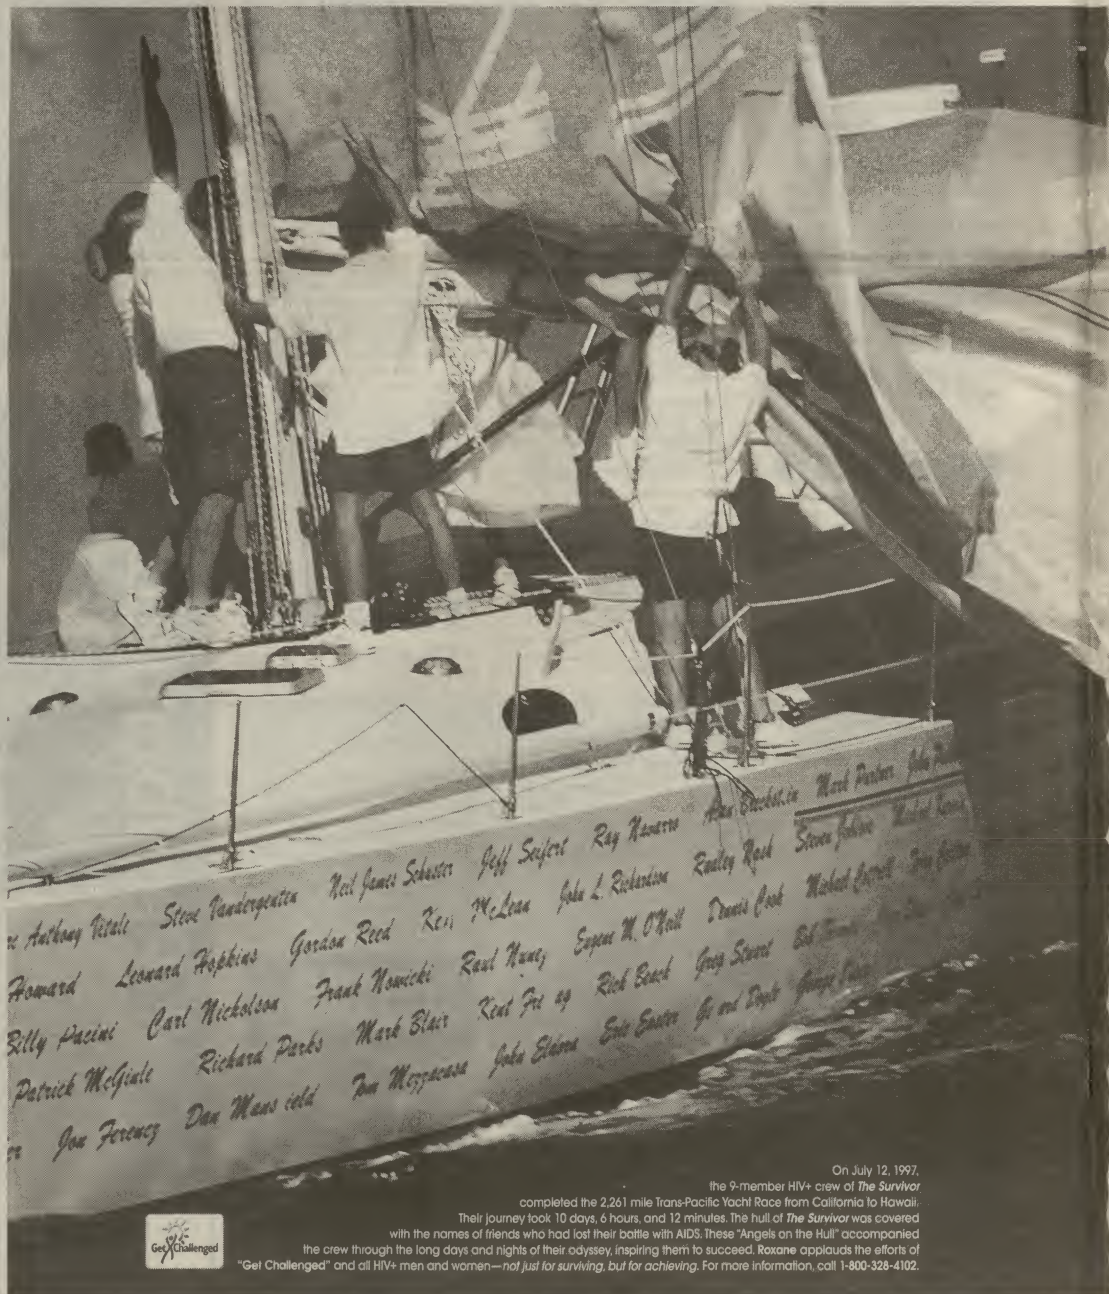 Anthony Vitale Steve Vandergenten Neil James Schuster Jeff Seifert Ray Navarro Mark Partner John
Howard Leonard Hopkins Gordon Reed McLean John L. Richardson Nash Steven
Billy Pacini Carl Nicholson Frank Nowicki Raul Nunez Eugene M. O'Neill Dennis Cook Michael
Patrick McGinle Richard Parks Mark Blair Kent Rick Beach Greg Stuart Bob
Jon Ferencz Dan Mans ield Tom Mezzacasa John Elborn Eric Easter Doyle George
On July 12, 1997,
the 9-member HIV+ crew of The Survivor
completed the 2,261 mile Trans-Pacific Yacht Race from California to Hawaii.
Their journey took 10 days, 6 hours, and 12 minutes. The hull of The Survivor was covered
with the names of friends who had lost their battle with AIDS. These "Angels on the Hull" accompanied
the crew through the long days and nights of their odyssey, inspiring them to succeed. Roxane applauds the efforts of
"Get Challenged" and all HIV+ men and women—not just for surviving, but for achieving. For more information, call 1-800-328-4102.
Get Challenged